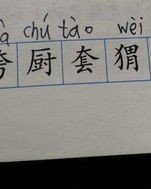 à chú tào wèi
厨 套 猬